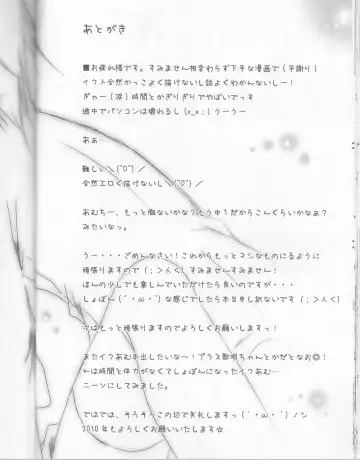 あとがき
■お疲れ様です。すみません相変わらず下手な漫画で(平謝り)
イクト全然かっこよく描けないし話よくわかんないしー!
ぎゃー(涙)時間とかぎりぎりでやばいでっす
途中でパソコンは壊れるし(x_x;)うーうー
あぁ…
難しい＼(^O^)／
全然エロく描けないし＼(^O^)／
あむちー、もっと胸ないかな?もう中1だからこんぐらいかなぁ?
みたいなっ。
うー・・・ごめんなさい!これからもっとマシなものになるように
頑張りますので(;>人<)すみませんすみません!
ほんの少しでも楽しんでいただけたら良いのですが・・・
しょぼん(´・ω・`)な感じでしたら本当申し訳ないです(;>人<)
ではもっと頑張りますのでよろしくお願いしますっ!
またイクあむ本出したいな~!プラス歌唄ちゃんとかだとなお◎!
←は時間と体力がなくてしょぼんになったイクあむ…
ニーソにしてみました。
ではでは、そろそろこの辺で失礼しますっ(´・ω・`)ノシ
2010年もよろしくお願いいたします☆